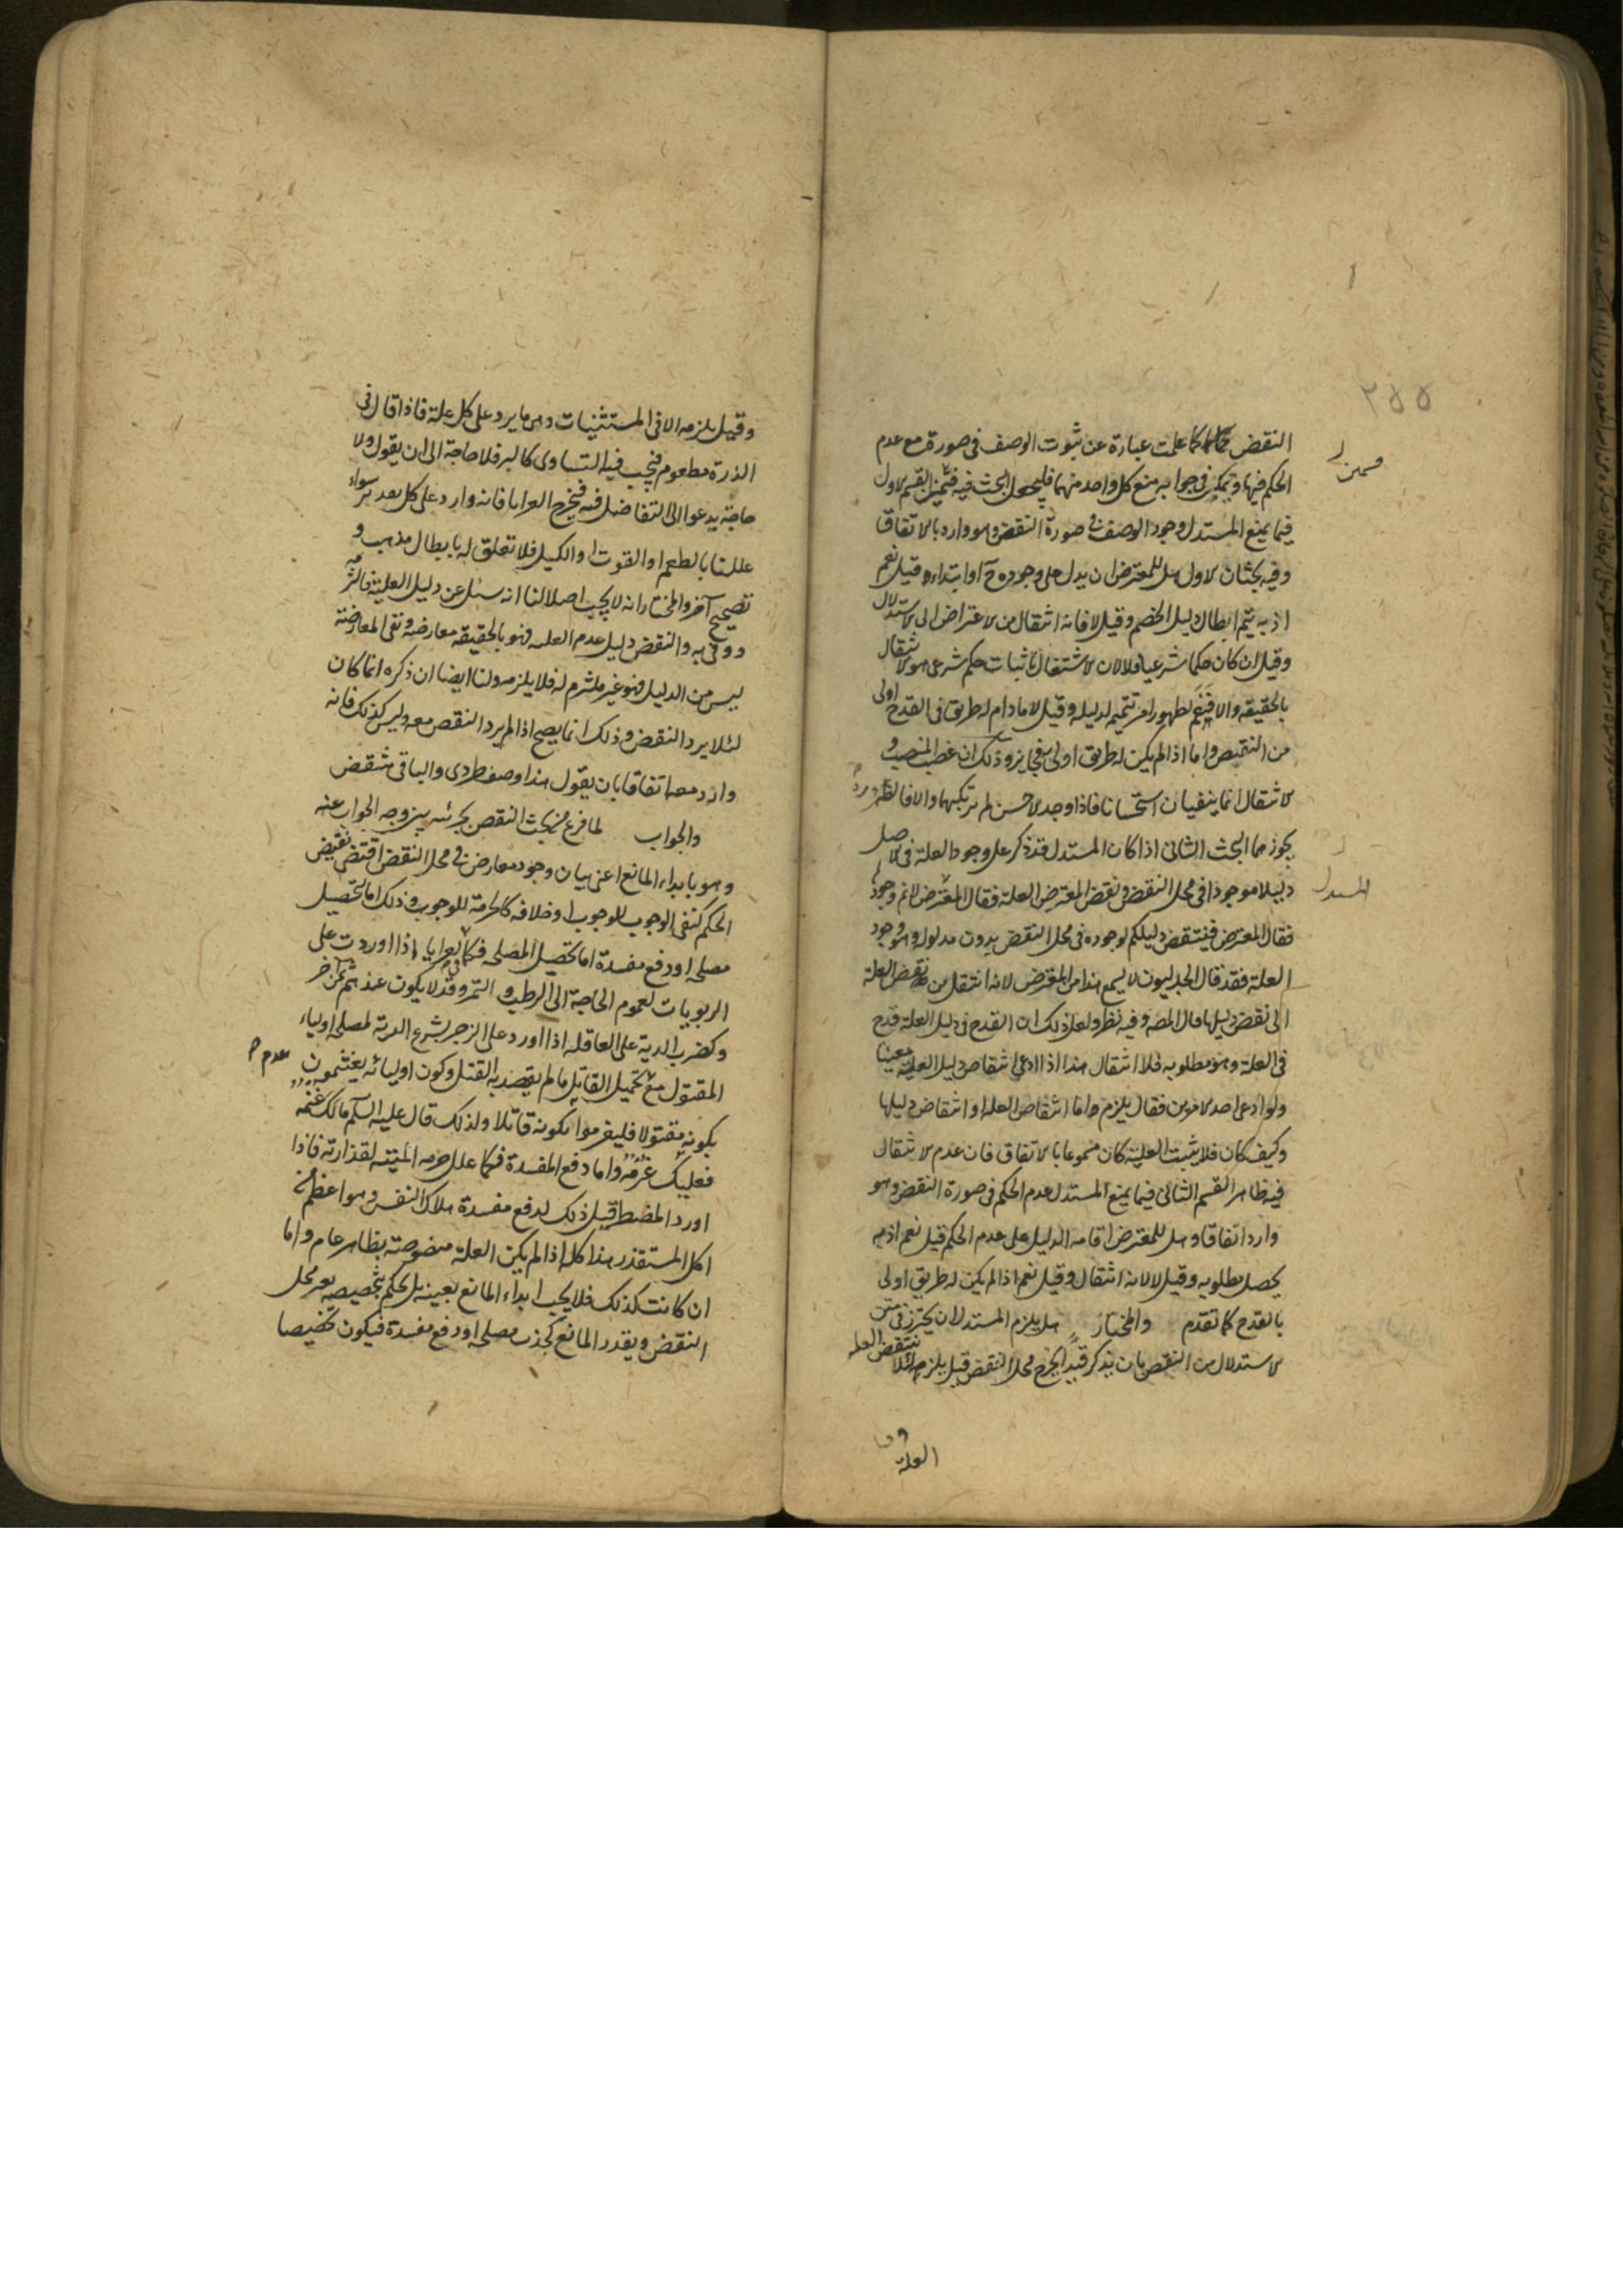 ٢٥٥
النقض كما علمت عبارة عن ثبوت الوصف فى صورة مع عدم
الحكم فيها ويمكن فى جوابه منع كل واحد منهما فليجعل البحث فيه قسمين القسم الاول
فيما يمنع المستدل وجود الوصف فى صورة النقض وهو وارد بالاتفاق
وفيه بحثان الاول هل للمعترض ان يدل على وجوده ح او ابتداء وقيل نعم
اذ به يتم ابطال دليل الخصم وقيل لا فانه انتقال من الاعتراض الى الاستدلال
وقيل ان كان حكما شرعيا فلا لان الاشتغال باثبات حكم شرعى هو الانتقال
بالحقيقه والا فنعم لظهور امر تتميم لدليله وقيل لا مادام له طريق فى القدح اولى
من النقيض واما اذا لم يكن له طريق اولى به فجايز وذلك ان غصب المنصب و
الانتقال انما ينفيان استحسانا فاذا وجد الاحسن لم يرتكبهما والا فالضرورة
يجوزهما البحث الثانى اذا كان المستدل قد ذكر على وجود العلة فى الاصل
دليلا موجودا فى محل النقض ونقض المعترض العلة فقال المعترض لا نم وجوده
المستدل
فقال المعترض فينتقض دليلكم لوجوده فى محل النقض بدون مدلوله وهو وجود
العلة فقد قال الجدليون لا يسمع هذا من المعترض لانه انتقل من نقض العلة
الى نقض دليلها قال المصـ وفيه نظر ولعل ذلك ان القدح فى دليل العلة قدح
فى العلة وهو مطلوبه فلا انتقال هذا اذا ادعى انتقاض دليل العلية معينا
ولو ادعى احد الامرين فقال يلزم واما انتقاض العلة او انتقاض دليلها
وكيف كان فلا يثبت العلية كان مسموعا بالاتفاق فان عدم الانتقال
فيه ظاهر القسم الثانى فيما يمنع المستدل عدم الحكم فى صورة النقض وهو
وارد اتفاقا وهل للمعترض اقامة الدليل على عدم الحكم قيل نعم اذ به
يحصل مطلوبه وقيل لا لانه انتقال وقيل نعم اذا لم يكن له طريق اولى
بالقدح كما تقدم والمختار هل يلزم المستدل ان يحترز فى متن
الاستدلال من النقض بان يذكر قيدا يخرج محل النقض قيل يلزمه لئلا ينتقض العلة
وقيل يلزمه الا فى المستثنيات وهى ما يرد على كل علة فاذا قال فى
الذرة مطعوم فيجب فيه التساوى كالبر فلا حاجة الى ان يقول ولا
حاجة يدعو الى التفاضل فيه فيخرج العرايا فانه وارد على كل تقدير سواء
عللنا بالطعم او القوت او الكيل فلا تعلق له بابطال مذهب و
تصحيح آخر والمختار انه لا يجب اصلا لنا انه سئل عن دليل العلية فالتزمه
ووفى به والنقض دليل عدم العليه فهو بالحقيقه معارضة ونفى المعارضة
ليس من الدليل فهو غير ملتزم له فلا يلزمه ولنا ايضا ان ذكره انما كان
لئلا يرد النقض وذلك انما يصح اذا لم يرد النقض معه وليس كذلك فانه
وارد معه اتفاقا بان يقول هذا وصف طردى والباقى منتقض
والجواب لما فرغ من بحث النقض بجزئيه بين وجه الجواب عنه
وهو بابداء المانع اعنى بيان وجود معارض فى محل النقض اقتضى نقيض
الحكم كنفى الوجوب للوجوب او خلافه كالحرمة للوجوب وذلك اما لتحصيل
مصلحة او دفع مفسدة اما تحصيل المصلحة فكما فى العرايا اذا اوردت على
الربويات لعموم الحاجة الى الرطب والتمر وقد لا يكون عندهم ثمن آخر
وكضرب الدية على العاقله اذا اورد على الزجر لشرع الدية لمصلحة اولياء
المقتول مع عدم تحميل القاتل ما لم يقصد به القتل وكون اوليائه يغتنمون
بكونه مقتولا فليغرموا بكونه قاتلا ولذلك قال عليه السلم مالك غنمه
فعليك غرمه واما دفع المفسدة فكما علل حرمه الميتة لقذارته فاذا
اورد المضطر قيل ذلك لدفع مفسدة هلاك النفس وهو اعظم من
اكل المستقذر هذا كله اذا لم يكن العلة منصوصة بظاهر عام واما
ان كانت كذلك فلا يجب ابداء المانع بعينه بل يحكم بتخصيصه بغير محل
النقض ويقدر المانع كجذب مصلحة او دفع مفسدة فيكون تخصيصا